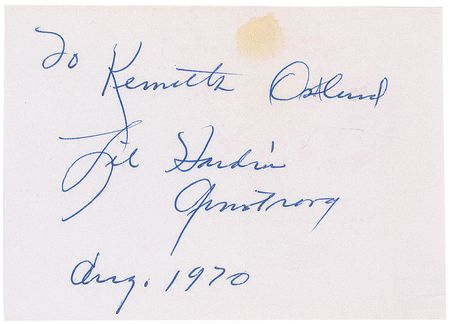 To Kenneth Ostlund
Lil Hardin
Armstrong
Aug. 1970